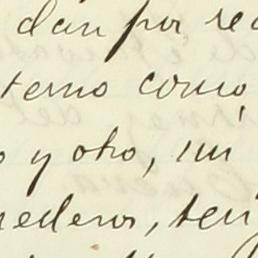 dan por rec
terno como
o y otro, ini
rederos, ten